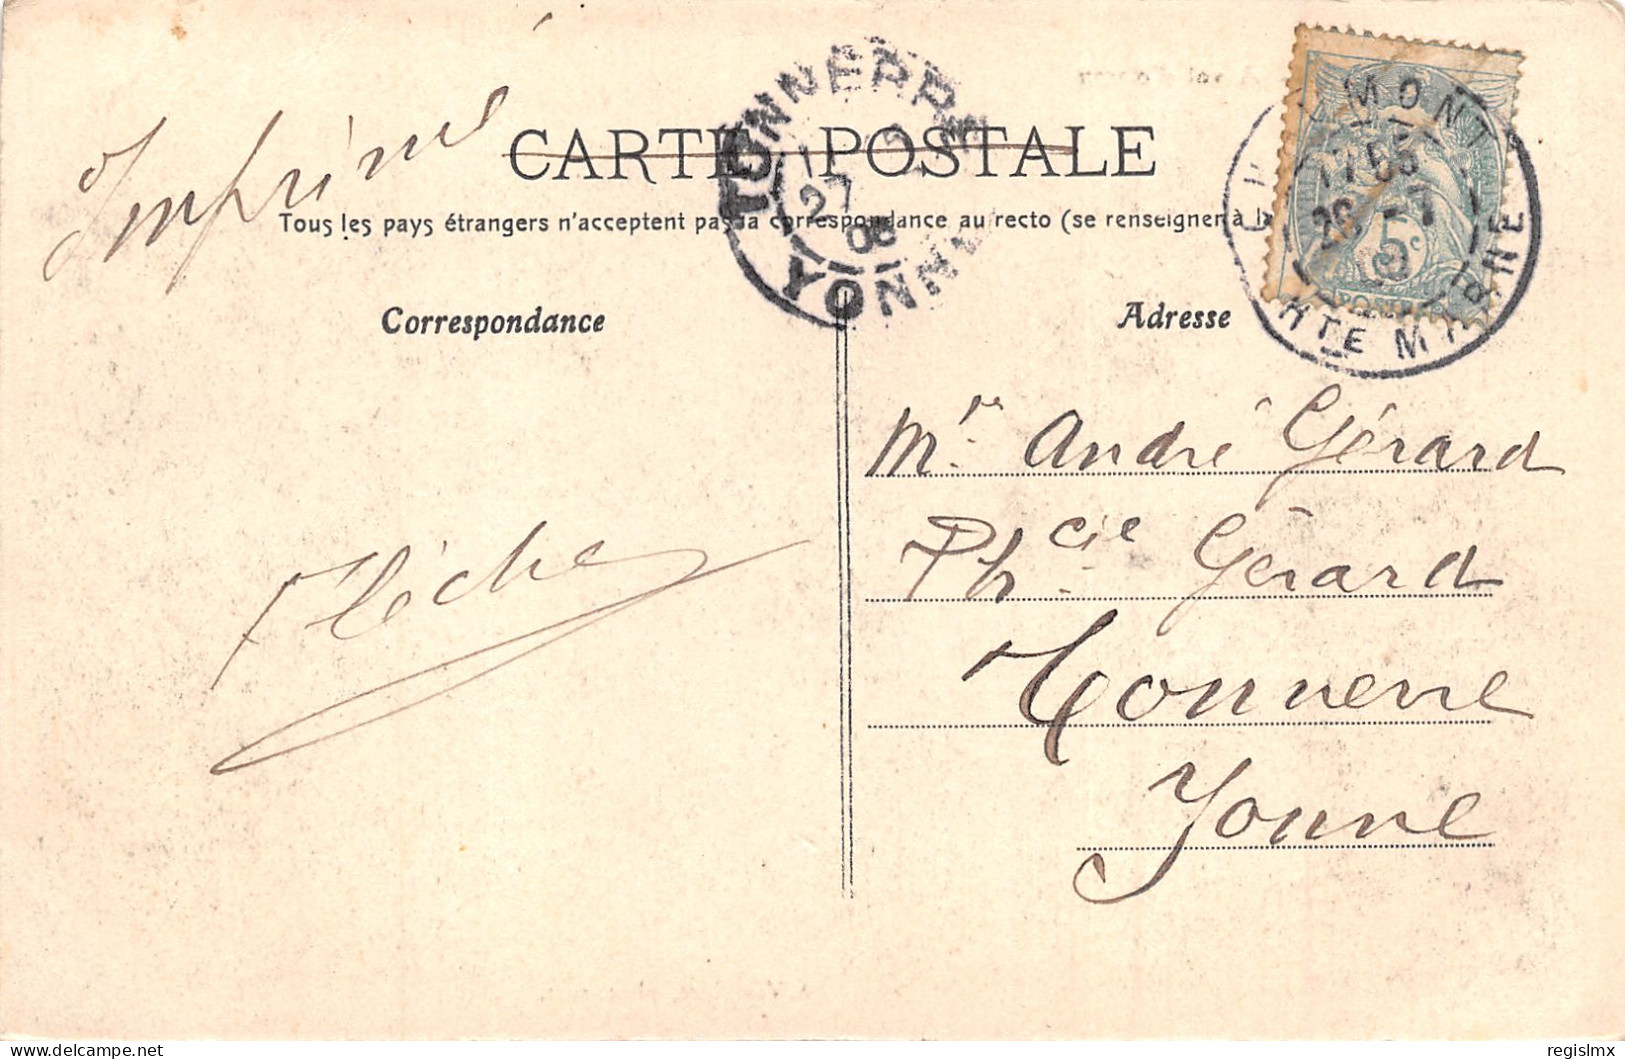 Imprimé
CARTE POSTALE
Tous les pays étrangers n'acceptent pas la correspondance au recto (se renseigner à la
Correspondance
Adresse
TONNERRE
27
08
YONNE
MONT
17 55
26 -7
HTE MARNE
5c
POSTES
Mr. André Gérard
Phcie Gérard
Tonnerre
Yonne
Flèche
regislmx